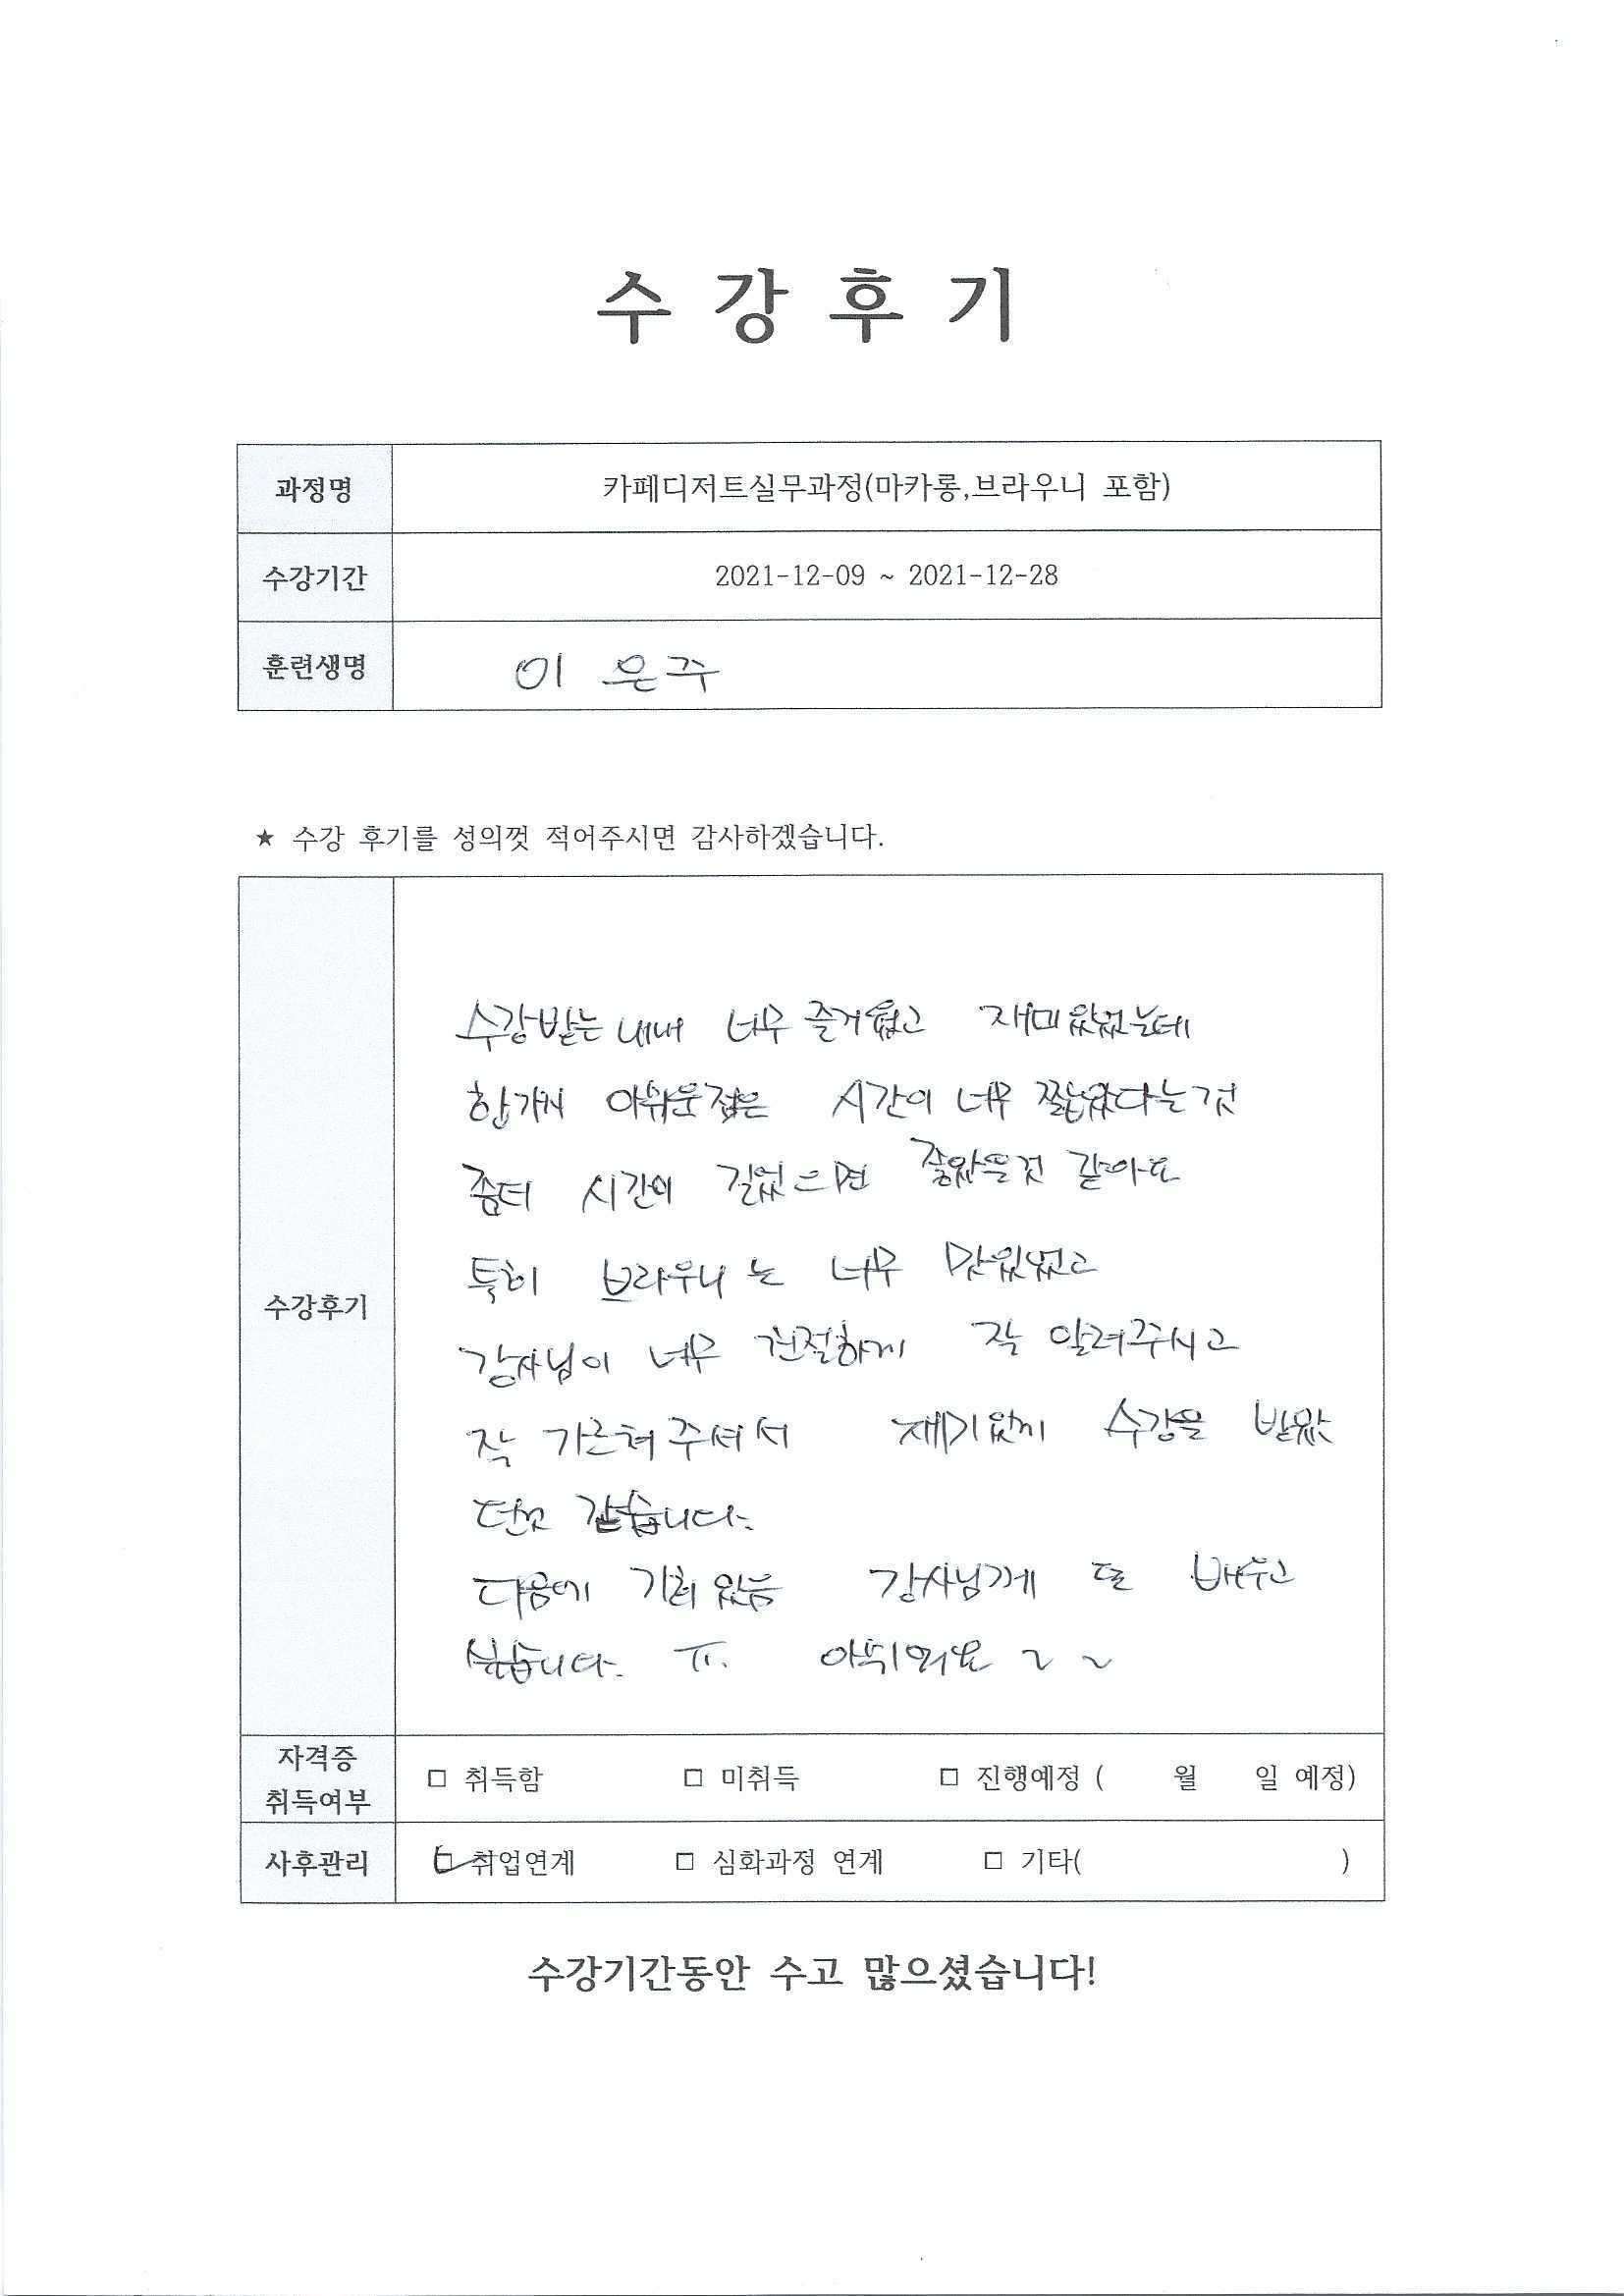 수 강 후 기
과정명 카페디저트실무과정(마카롱,브라우니 포함)
수강기간 2021-12-09 ~ 2021-12-28
훈련생명 이 은주
★ 수강 후기를 성의껏 적어주시면 감사하겠습니다.
수강후기
수강받는 내내 너무 즐거웠고 재미있었는데
한가지 아쉬운점은 시간이 너무 짧았다는것
좀더 시간이 길었으면 좋았을것 같아요
특히 브라우니는 너무 맛있었고
강사님이 너무 친절하게 잘 알려주시고
잘 가르쳐주셔서 재미있게 수강을 받았
던것 같습니다.
다음에 기회 있음 강사님께 또 배우고
싶습니다. ㅠ. 아쉬워요 ~ ~
자격증
취득여부 □ 취득함 □ 미취득 □ 진행예정 ( 월 일 예정)
사후관리 □ 취업연계 □ 심화과정 연계 □ 기타( )
수강기간동안 수고 많으셨습니다!